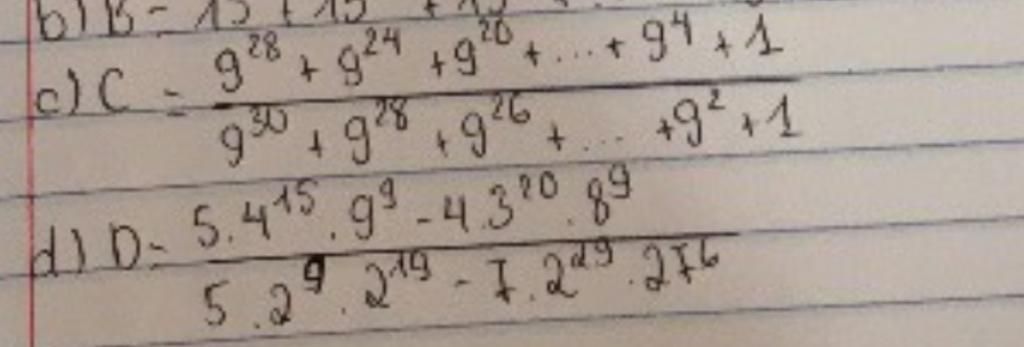 b) B = 15 + 15 + 15
c) C = \frac{9^{28} + 9^{24} + 9^{20} + ... + 9^{4} + 1}{9^{30} + 9^{28} + 9^{26} + ... + 9^{2} + 1}
d) D = \frac{5.4^{15}.9^{9} - 4.3^{20}.8^{9}}{5.2^{9}.2^{19} - 7.2^{29}.27^{6}}